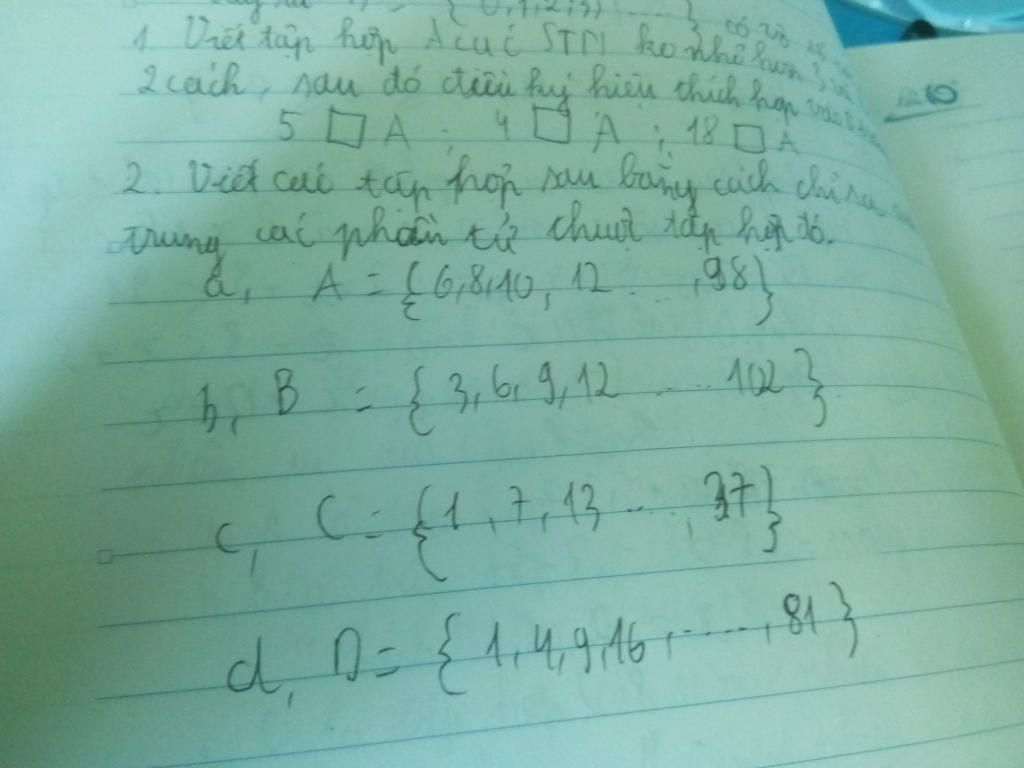 { 0,1,2,3, ..... }
1. Viết tập hợp A các STN ko nhỏ hơn
2 cách, sau đó điền ký hiệu thích hợp vào
5 □ A ; 4 □ A ; 18 □ A
2. Viết các tập hợp sau bằng cách chỉ ra
trưng các phần tử thuộc tập hợp đó.
a, A = {6,8,10, 12 ... ,98}
b, B = { 3,6,9,12 .... 102 }
c, C = {1 ,7,13 ... , 37}
d, D = { 1,4,9,16, ....., 81 }